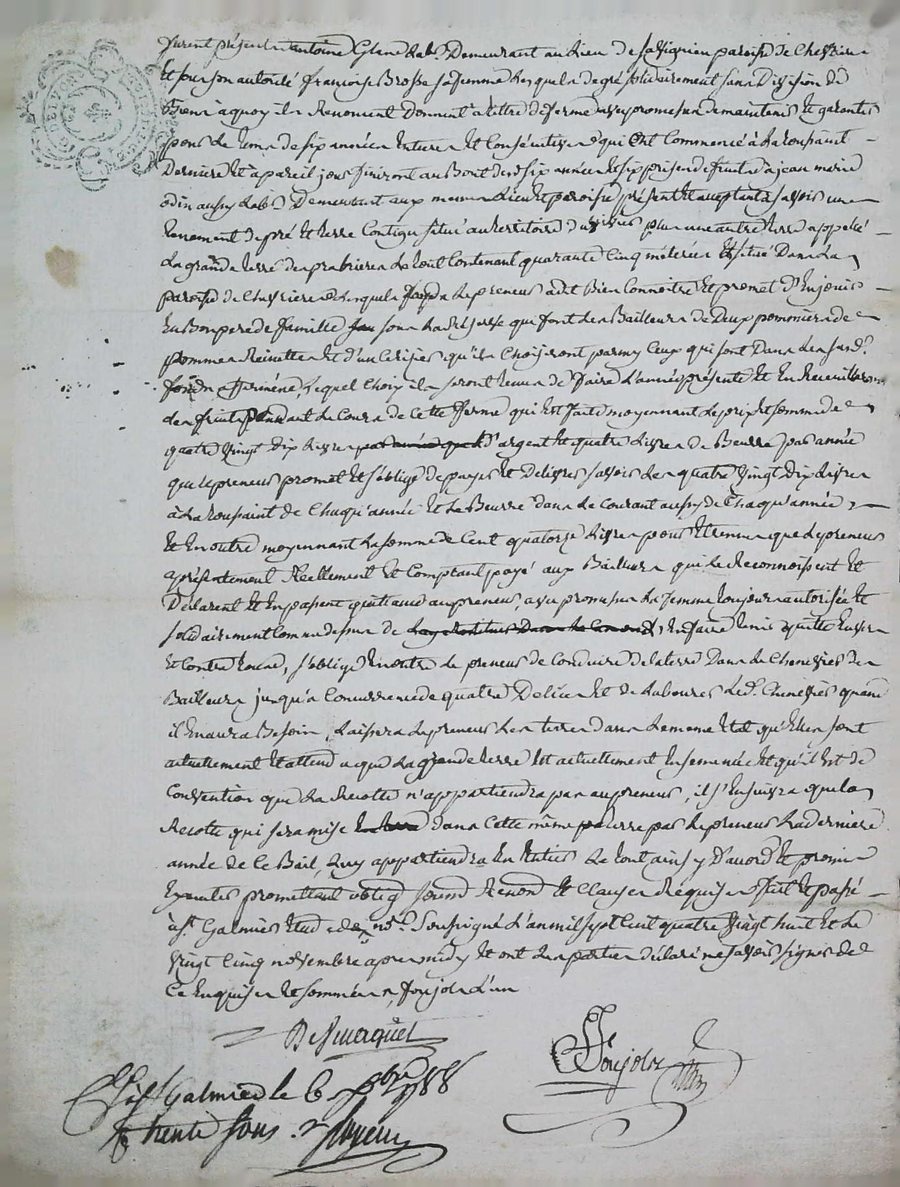 furent présents antoine Glene Lab.r Demeurant au Lieu de savignieu paroisse de Chevriere
Et sous son autorité francoise Brosse sa femme Lesquels de gré solidairement sans Division de
Biens à quoy ils Renoncent Donnent à titre de ferme avec promesse de maintenir Et garantir
pour Le tems de six années Entieres Et Consécutives qui ont Commencé à La toussaint
Derniere Et à pareil jour finiront au Bout des six années Et six prises de fruits à jean marie
odin aussy Lab.r Demeurant aux memes Lieu Et paroisse présent Et acceptant à savoir un
tenement de pré Et terre Contigu situé au territoire du plus une autre terre appellée
La grande terre des prabrieres Le tout Contenant quarante Cinq méterées Et situé Dans La
paroisse de Chevrieres Lesquels fonds Le preneur a dit Bien Connoitre Et promet d'En jouir
En Bon pere de famille sous La Réserve que font Les Bailleurs de Deux pommiers de
pomme Reinette Et d'un Cerisier qu'ils Choisiront parmy Ceux qui sont Dans Les susd.
fonds affermés, Lequel Choix ils seront tenus de faire L'année présente Et En Recueilliront
Les fruits pendant Le Cours de Cette ferme qui Est faite moyennant Le prix Et somme de
quatre vingt Dix Livres par année que d'argent Et quatre Livres de Beurre par année
que Le preneur promet Et s'oblige de payer Et Délivrer savoir Les quatre vingt Dix Livres
à La toussaint de Chaqu'année Et Le Beurre dans Le Courant aussy de Chaqu'année,
Et En outre moyennant La somme de Cent quatorze Livres pour Etrennes que Le preneur
a présentement Réellement Et Comptant payé aux Bailleurs qui Le Reconnoissent Et
Déclarent Et En passent quittance au preneur, avec promesse La femme toujours autorisée Et
solidairement Comme dessus de L'En faire tenir quitte Envers
Et Contre tous, s'oblige En outre Le preneur de Conduire de La terre Dans La Cheneviere des
Bailleurs jusqu'a Concurrence de quatre Et de Labourer Led. Chenevier quand
il En aura Besoin, Laissera Le preneur Les terres dans Le meme Etat qu'Elles sont
actuellement Et attendu que La grande terre Est actuellement Ensemencée Et qu'il Est de
Convention que La Recolte n'appartiendra pas au preneur, il s'Ensuivra que La
Recolte qui sera mise dans Cette même terre par Le preneur La derniere
année de Ce Bail, Luy appartiendra En Entier Le tout ainsy D'accord Et promis
Executer promettant oblig.n soum.n Renon.n Et Clauses Requises fait Et passé
à S.t Galmier Etude de n.re Soussigné L'an mil sept Cent quatre vingt huit Et Le
vingt Cinq novembre apres midy Et ont Les parties déclaré ne savoir signer de
Ce Enquises Et sommées, Foujols L'un
Foujols
à S.t Galmier le 6 xbre 1788
R trente sous